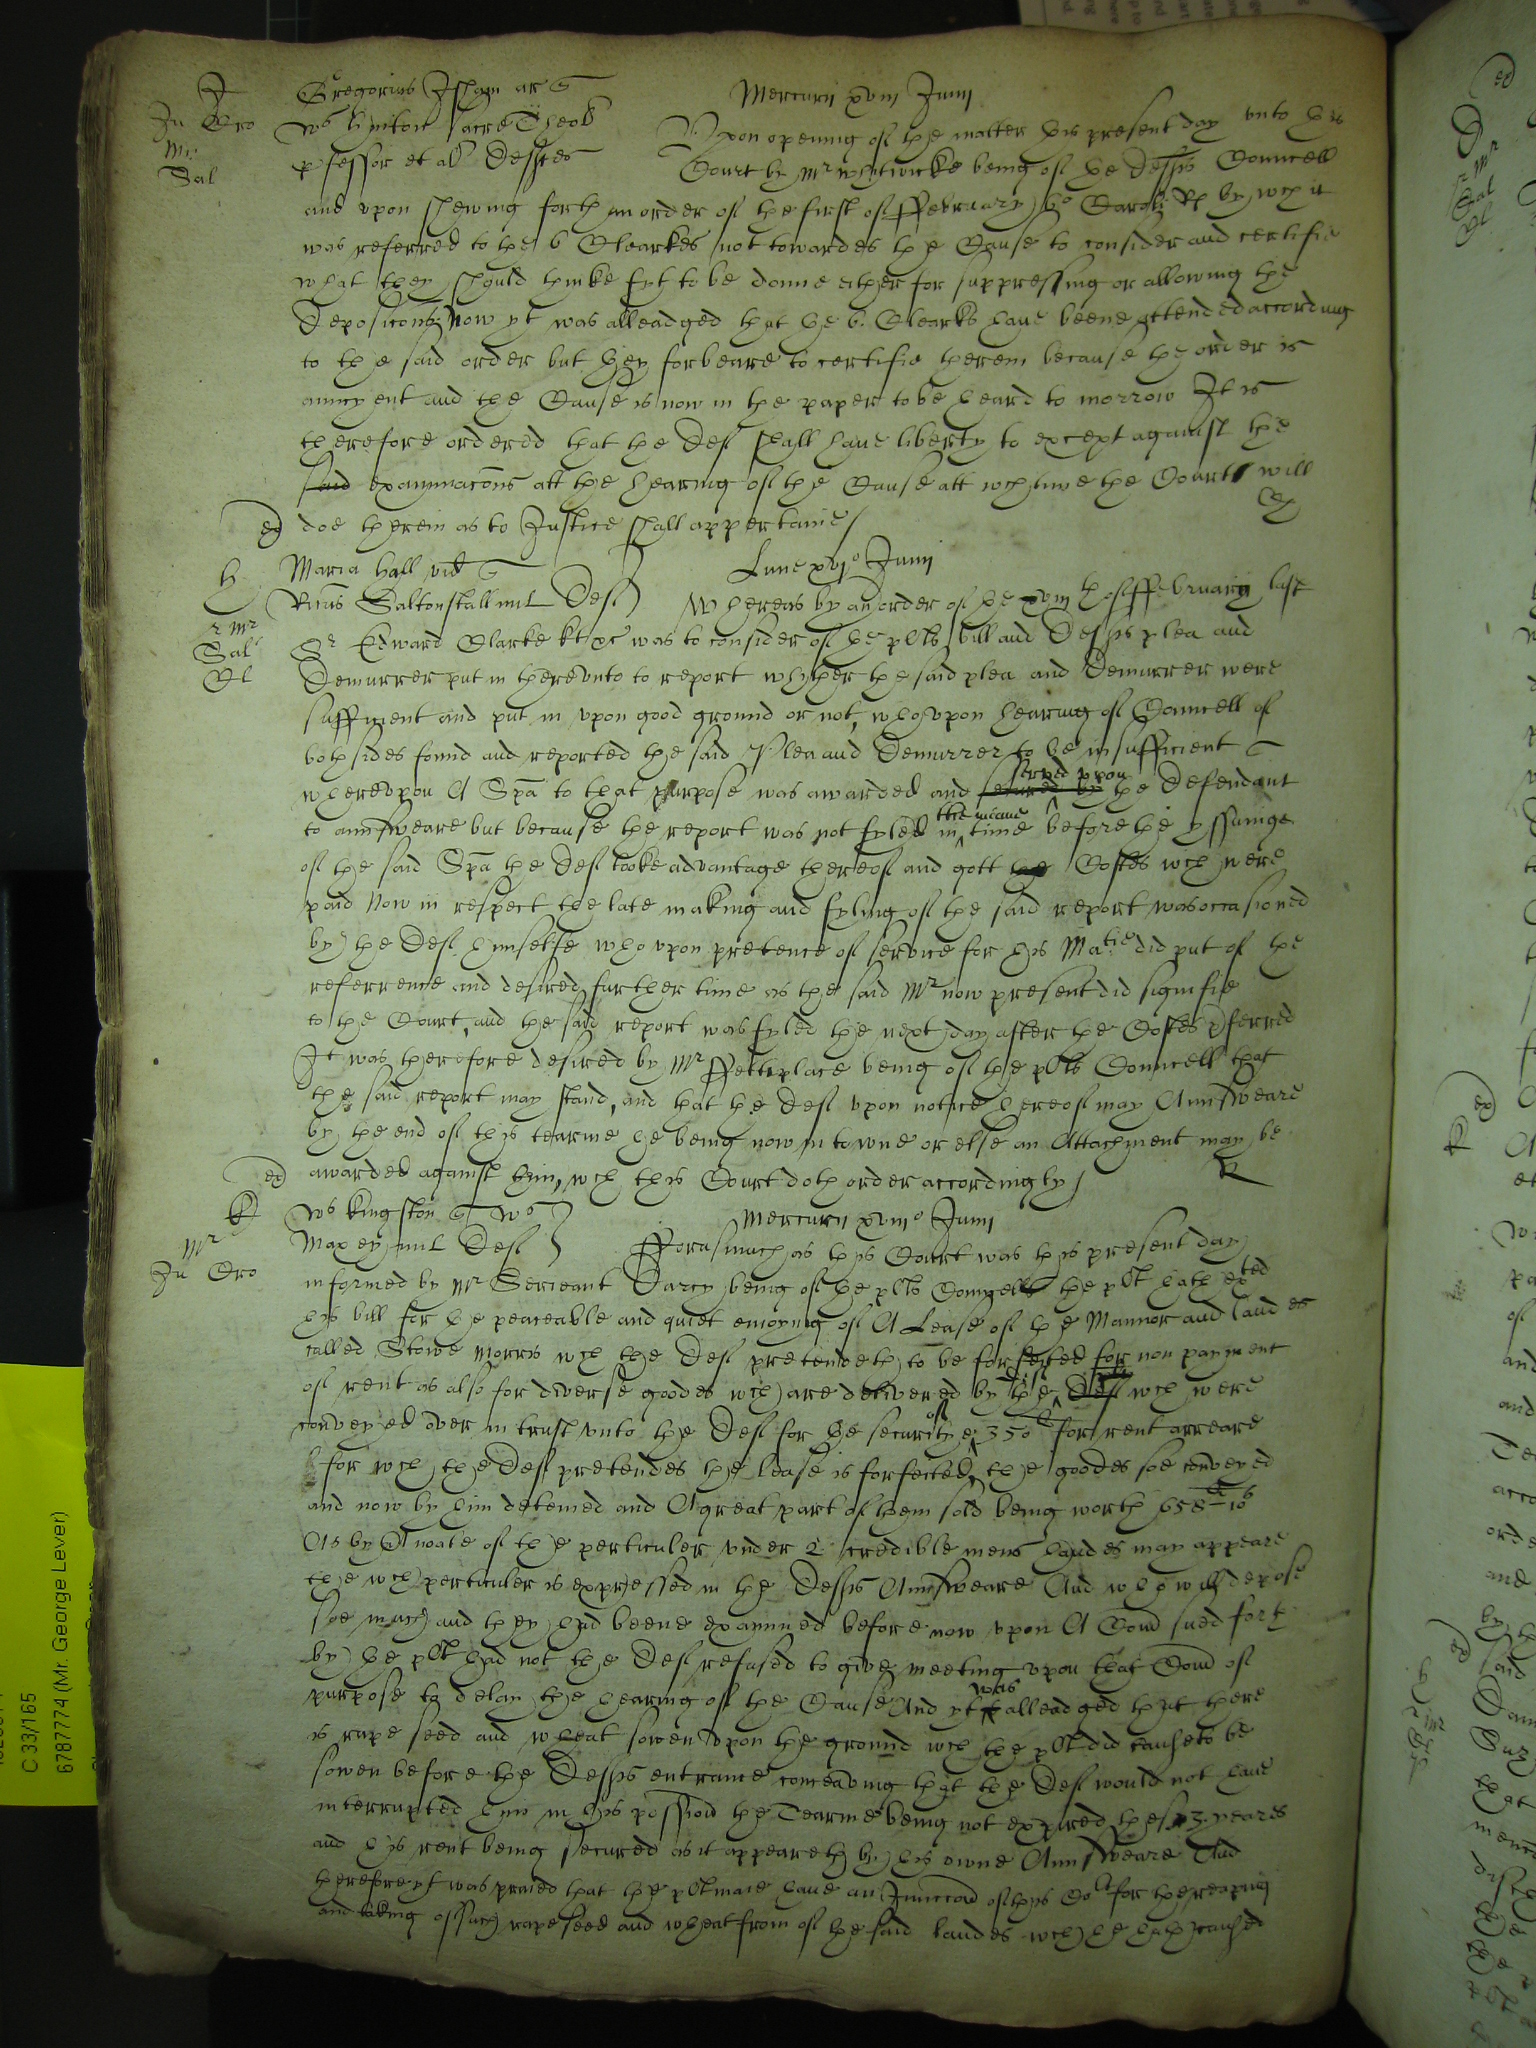 J Gregorius Isham ar
Mercurii xviii Junii
Ju Cro
Ws Hinton sacre Theol
Vpon opening of the matter this present day vnto this
Mr
Sal
pfessor et al Deftes
Court by Mr Whitwicke being of the Deftes Councell
and vpon shewing forth an order of the first of ffebruary 6o Caroli Rs by wch it
was referred to the 6 Clearkes not towardes the Cause to consider and certifie
what they should thinke fyt to be donne either for suppressing or allowing the
Deposicons Now yt was alleadged that the 6. Clearks haue beene attended according
to the said order but they forbeare to certifie therein because the order is
auncyent and the Cause is now in the paper to be heard to morrow It is
therefore ordered that the Def shall haue liberty to except against the
said examinacons att the hearing of the Cause att wch time the Court will
ex doe therein as to Justice shall appertaine
H Maria Hall vid
Lune xvio Junii
Ricus Saltonstall mil Def
Whereas by an order of the xviiith of ffebruary last
r Mr
Sal
Cl
Sr Edward Clarke kt &c was to consider of the plts bill and Deftes plea and
Demurrer put in therevnto to report whither the said plea and Demurrer were
sufficient and put in vpon good ground or not, who vpon hearing of Councell of
both sides found and reported the said Plea and Demurrer to be insufficient
wherevpon A Spa to that purpose was awarded and serued by served vpon the Defendant
to aunsweare but because the report was not fyled in the meane time before the yssuinge
of the said Spa the Def tooke advantage thereof and gott the Costes wch were
paid Now in respect the late making and fyling of the said report was occasioned
by the Def himselfe who vpon pretence of service for his Matie did put of the
referrence and desired further time as the said Mr now present did signifie
to the Court, and the said report was fyled the next day after the Costes pferred
It was therefore desired by Mr ffettiplace being of the plts Councell that
the said report may stand, and that the Def vpon notice hereof may Aunsweare
by the end of this tearme he being now in towne or else an Attachment may be
ex awarded against him, wch this Court doth order accordingly
K Ws Kingston Ws
Mercurii xviiio Junii
Mr
Maxey mil Def
fforasmuch as this Court was this present day
Ju Cro
informed by Mr Serieant Darcy being of the plts Councell the plt hath exted
his bill for the peaceable and quiet enioying of A Lease of the Mannor and landes
called Stowe Morris wch the Def pretendeth to be forfeited for non payment
of rent as also for diverse goodes wch are delivered by the Def wch were
conveyed over in trust vnto the Def for the securitye of 350 for rent arreare
for wch the Def pretendes the lease is forfected, the goodes soe conveyed
and now by him deteined and A great part of them sold being worth 658 10s
As by A noate of the perticuler vnder 2 credible mens handes may appeare
the wch perticuler is expressed in the Deftes Aunsweare And who will depose
soe much and they had beene examined before now vpon A Comd sued forth
by the plt had not the Def refused to give meeting vpon that Comd of
purpose to delay the hearing of the Cause And yt was alleadged that there
is rape seed and wheat sowen vpon the ground wch the plt did cause to be
sowen before the Deftes entrance conceaving that the Def would not haue
interrupted him in his possion the Tearme being not expired these 3. yeares
and his rent being secured as it appeareth by his owne Aunsweare And
therefore yt was praied that the plt maie haue an Iniunccon of this Cot for the reaping
and taking of such rape seed and wheat from of the said landes wch he hath caused
C 33/165
6787774 (Mr. George Lever)